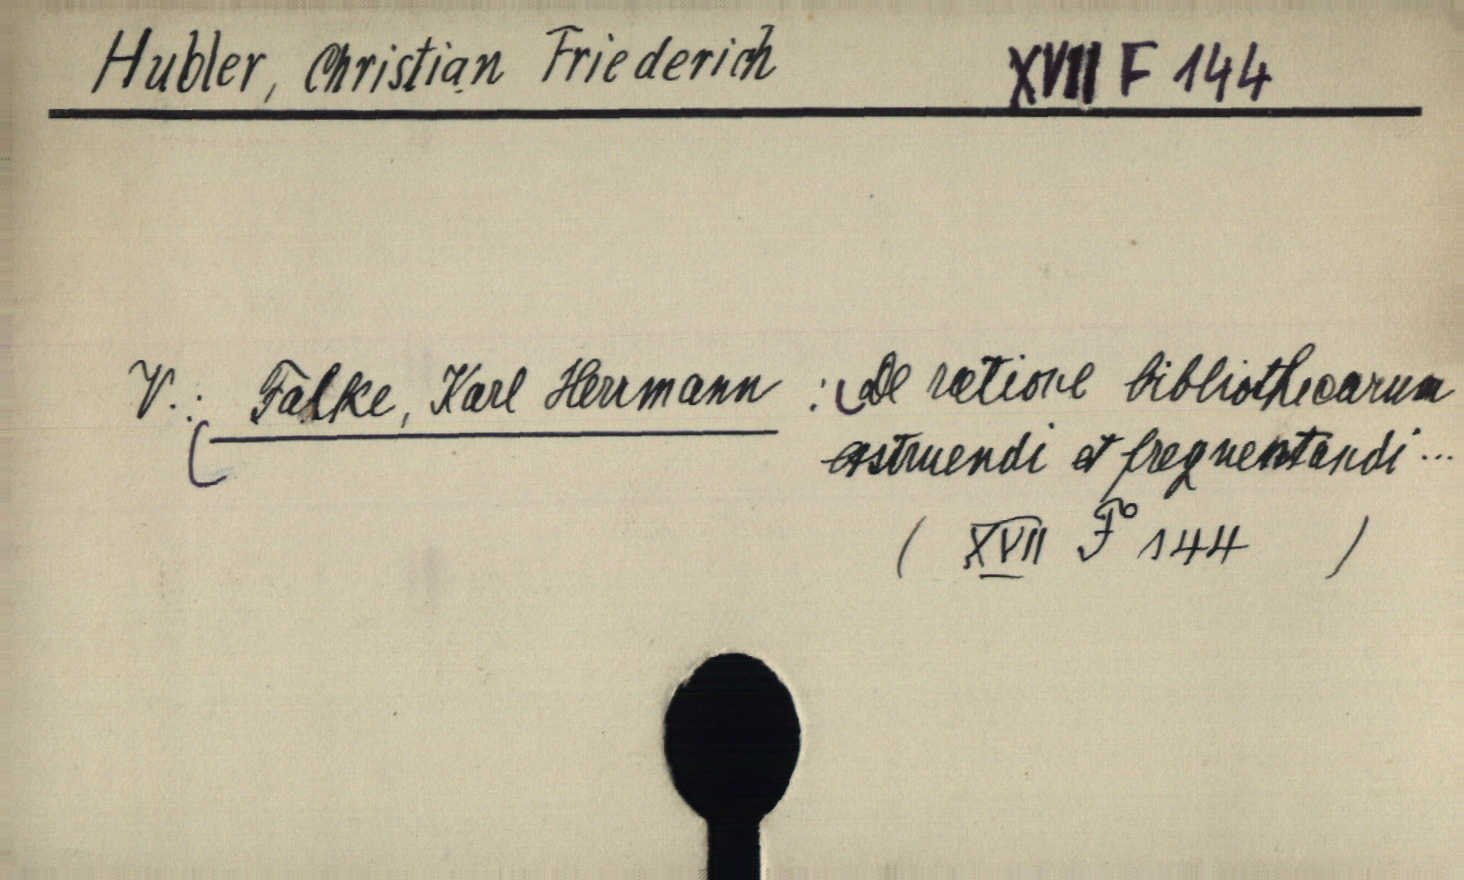 Hubler, Christian Friederich XVII F 144
V.: Falke, Karl Herrmann : De ratione bibliothecarum
astruendi et frequentandi ...
( XVII F° 144 )